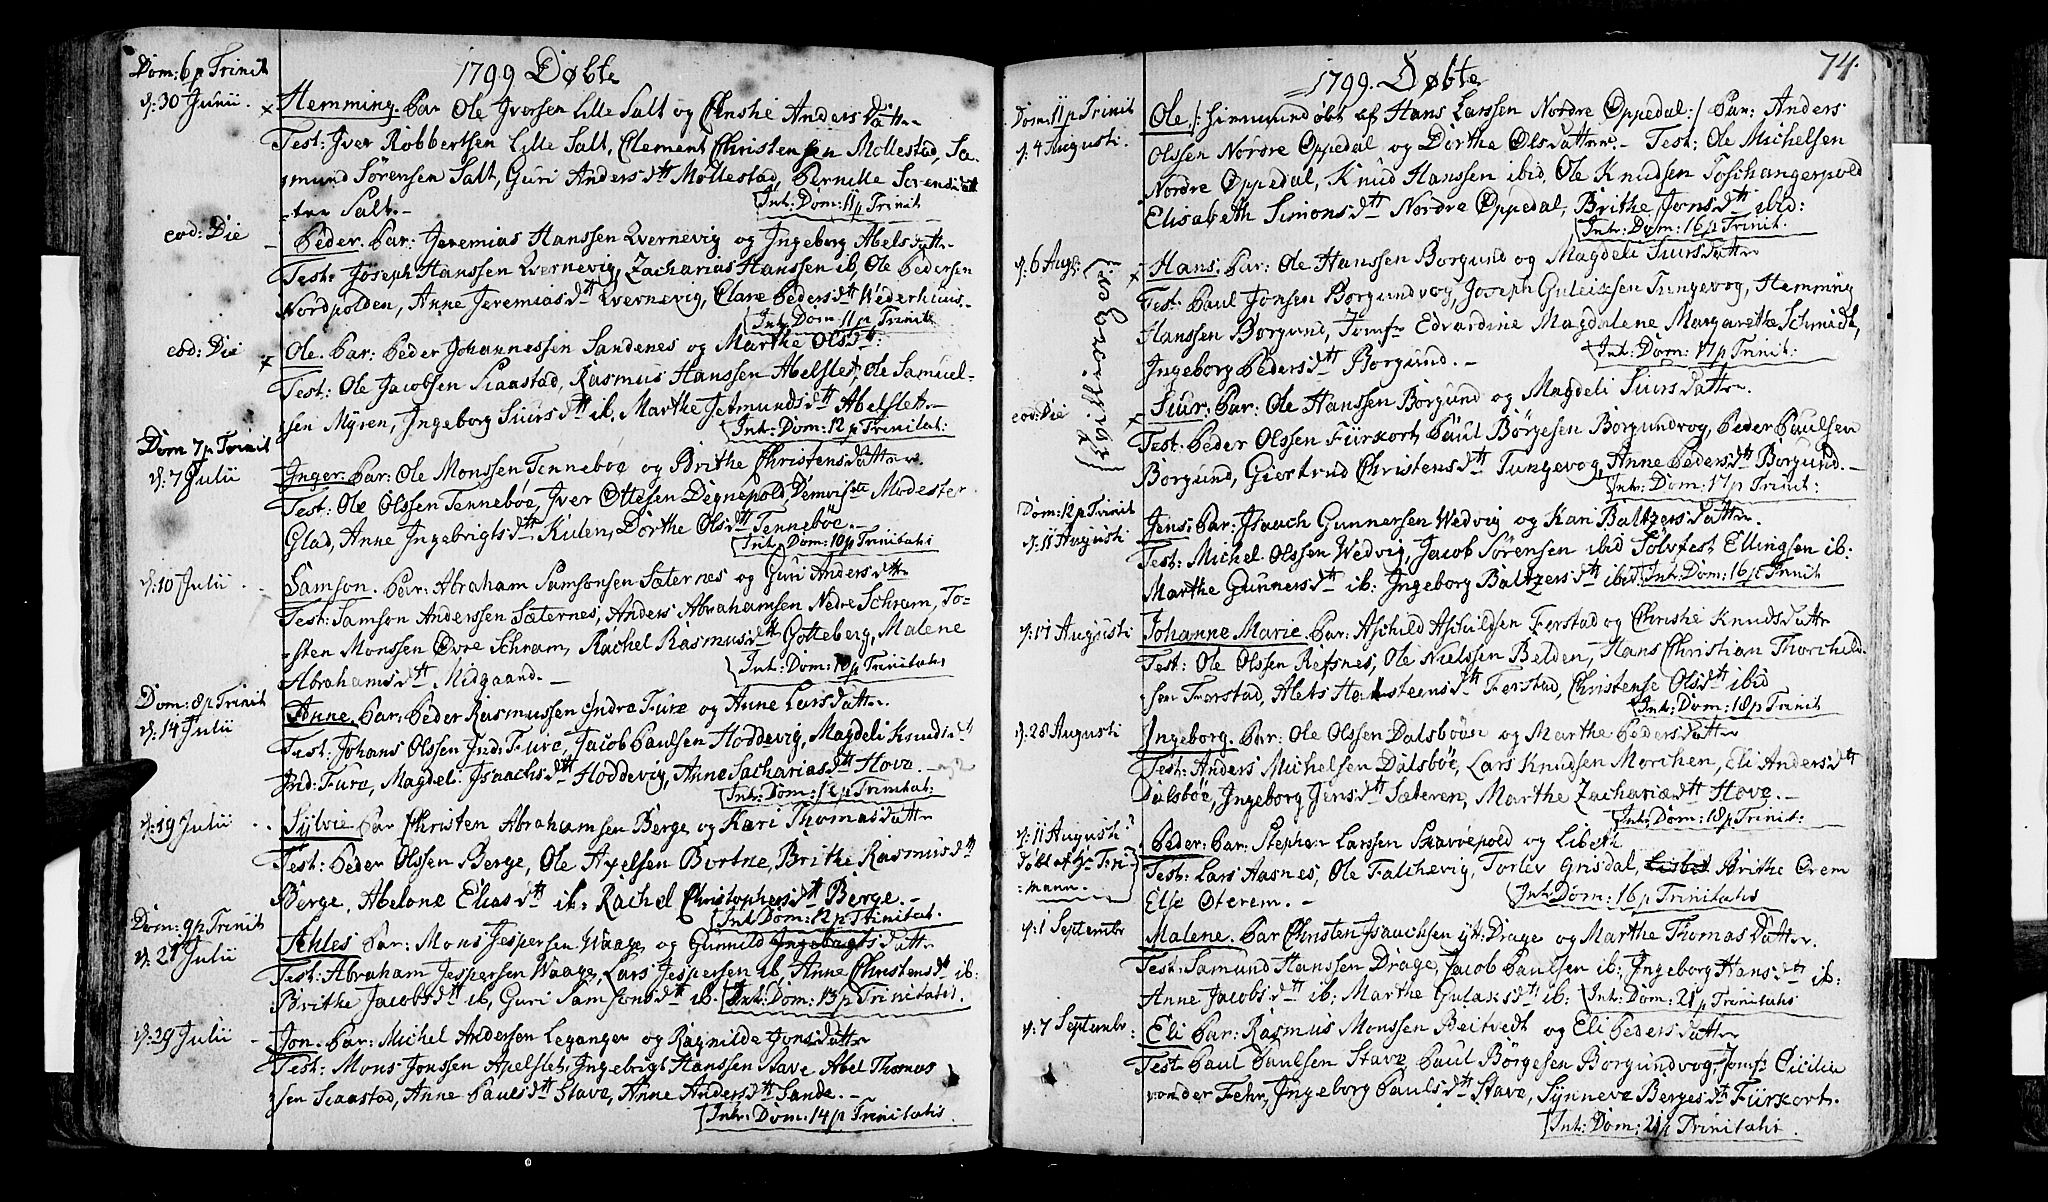 1799 Døbte
Dom: 6 p Trinit
d: 30 Junii.
Hemming. Par Ole Iversen Lille Salt og Christie Anders Datter
Test: Iver Robbertsen Lille Salt, Clement Christensen Mollestad, Sa-
mund Sörensen Salt, Guri Andersdtt Möllestad, Pernille Sörensdat-
ter Salt.-
Int: Dom: 11 p Trinit
eod: Die
Peder. Par: Jeremias Hanssen Qvernevig og Ingeborg Abels datter
Test: Joseph Hanssen Qvernevig, Zacharias Hanssen ib, Ole Pedersen
Nordpolden, Anne Jeremiasdtt Qvernevig, Clare Pedersdtt Wederhuus-
Int: Dom 11 p Trinit
eod: Die
Ole. Par: Peder Johannessen Sandenes og Marthe Olsdtt:
Test: Ole Jacobsen Scaastad, Rasmus Hanssen Abelslet, Ole Samuel-
sen Myren, Ingeborg Siursdtt ib, Marthe Jetmundsdtt Abelslet-
Int: Dom: 12 p Trinitat:
Dom 7 p Trinit
d: 7 Julii
Inger. Par: Ole Monssen Tenneböe og Brithe Christens Datter.
Test: Ole Olssen Tenneböe, Iver Ottesen Degnepold, Demoiselle Modester
Glad, Anne Ingebrigtsdtt Kulen, Dorthe Olsdtt Tenneböe.-
Int: Dom: 10 p Trinitatis
d: 10 Julii
Samson. Par: Abraham Samsonsen Sæternes og Guri Andersdtt
Test: Samson Anderssen Sæternes, Anders Abrahamsen Nedre Schram, To-
sten Monssen Övre Schram, Rachel Rasmusdtt Gotteberg, Malene
Abrahamsdtt Midgaard.-
Int: Dom: 10 p Trinitatis
Dom: 8 p Trinit
d: 14 Julii
Anne. Par: Peder Rasmussen Indre Fure og Anne Lars Datter.
Test: Johans Olssen Ind: Fure, Jacob Paulsen Hoddevig, Magdeli Knudsdtt
Ind: Fure, Magdeli Isaachsdtt Hoddevig, Anne Sachariasdtt Hove.-
Int: Dom: 12 p Trinitat:
d: 19 Julii
Sylvie Par Christen Abrahamsen Berge og Kari Thomas Datter
Test: Peder Olssen Berge, Ole Axelsen Bortne, Brithe Rasmusdtt
Berge, Abelone Eliasdtt ib: Rachel Christophersdtt Berge.-
Int: Dom: 12 p Trinitat.
Dom: 9 p Trinit
d: 21 Julii
Ahles Par: Mons Jespersen Waage og Gunnild Ingebrigts Datter
Test: Abraham Jespersen Waage, Lars Jespersen ib, Anne Christensdt ib:
Brithe Jacobsdtt ib, Guri Samsonsdtt ib: Int: Dom: 13 p Trinitatis.
d: 29 Julii
Jon. Par: Michel Andersen Leganger og Ragnilde Jons Datter
Test: Mons Jonssen Apelslet, Ingebrigt Hanssen Rave Abel Thomas
sen Scaastad, Anne Paulsdtt Stave, Anne Andersdtt Sande.-
Int: Dom: 14 p Trinitatis.
74.
1799. Døbte
Dom: 11 p Trinit
d: 4 Augusti.
Ole /: hiemmedöbt af Hans Larssen Nordre Oppedal:/ Par: Anders
Olssen Nordre Oppedal og Dorthe Ols Datter- Test: Ole Michelsen
Nordre Oppedal, Knud Hanssen ibid, Ole Knudsen Toschangerpold
Elisabeth Simonsdtt Nordre Oppedal, Brithe Jonsdtt ibid:
Int: Dom: 16 p Trinit.
d: 6 Aug:
Hans. Par: Ole Hanssen Borgund og Magdeli Siurs Datter
Test: Paul Jonsen Borgundvog, Joseph Guleiksen Tungevog, Hemming
Hanssen Borgund, Jomfr Edvardine Magdalene Margarethe Schmidt,
Ingeborg Pedersdtt Borgund.-
Int: Dom: 17 p Trinit:
eod: Die
Siur. Par: Ole Hanssen Borgund og Magdeli Siurs Datter.
Test. Peder Olssen Fürkort Paul Börgesen Borgundvog, Peder Paulsen
Borgund, Giertrud Christensdtt Tungevog, Anne Pedersdtt Borgund.-
Int: Dom: 17 p Trinit:
Dom: 12 p Trinit
d: 11 Augusti
Jens. Par: Isaach Gunnersen Wedvig og Kari Baltzers Datter.
Test: Michel Olssen Wedvig, Jacob Sörensen ibid Sölvfest Ellingsen ib:
Marthe Gunnersdtt ib: Ingeborg Baltzersdtt ibid. Int: Dom: 16 p Trinit
d: 17 Augusti
Johanne Marie. Par: Aschild Aschildsen Ferstad og Christie Knuds Datter
Test: Ole Olssen Refsnes, Ole Nielssen Belden, Hans Christian Thorchild-
sen Ferstad, Alets Holsteensdtt Ferstad, Christense Olsdtt ibid
Int: Dom: 18 p Trinit
d: 28 Augusti
Ingeborg. Par: Ole Olssen Dalsböe og Marthe Peders Datter
Test: Anders Michelsen Dalsböe, Lars Knudsen Morchen, Eli Andersdtt
Dalsböe, Ingeborg Jensdtt Sæteren, Marthe Zachariædtt Hove.-
Int: Dom: 18 p Trinit:
d: 11 Augusti
döbt af Hr Fri-
mann.
Peder. Par: Stephen Larssen Skavöepold og Libeth
Test: Lars Aasnes, Ole Falchevig, Torlev Grisdal, Brithe Orem
Else Oterem.-
Int: Dom: 16 p Trinitatis
d: 1 Septembr
Malene. Par Christen Isaachsen yt: Drage og Marthe Thomas Datter.
Test: Samund Hanssen Drage, Jacob Paulsen ib: Ingeborg Hansdtt ib:
Anne Jacobsdtt ib: Marthe Gulaksdtt ib: Int: Dom: 21 p Trinitatis
d: 7 Septembr
Eli Par: Rasmus Monssen Beitvedt og Eli Peders Datter
Test Paul Paulsen Stave Paul Börgesen Borgundvog Jomfr Cicilia
von der Fehr, Ingeborg Paulsdtt Stave, Synneve Bergesdt Fürkort.
Int: Dom: 21 p Trinitatis.